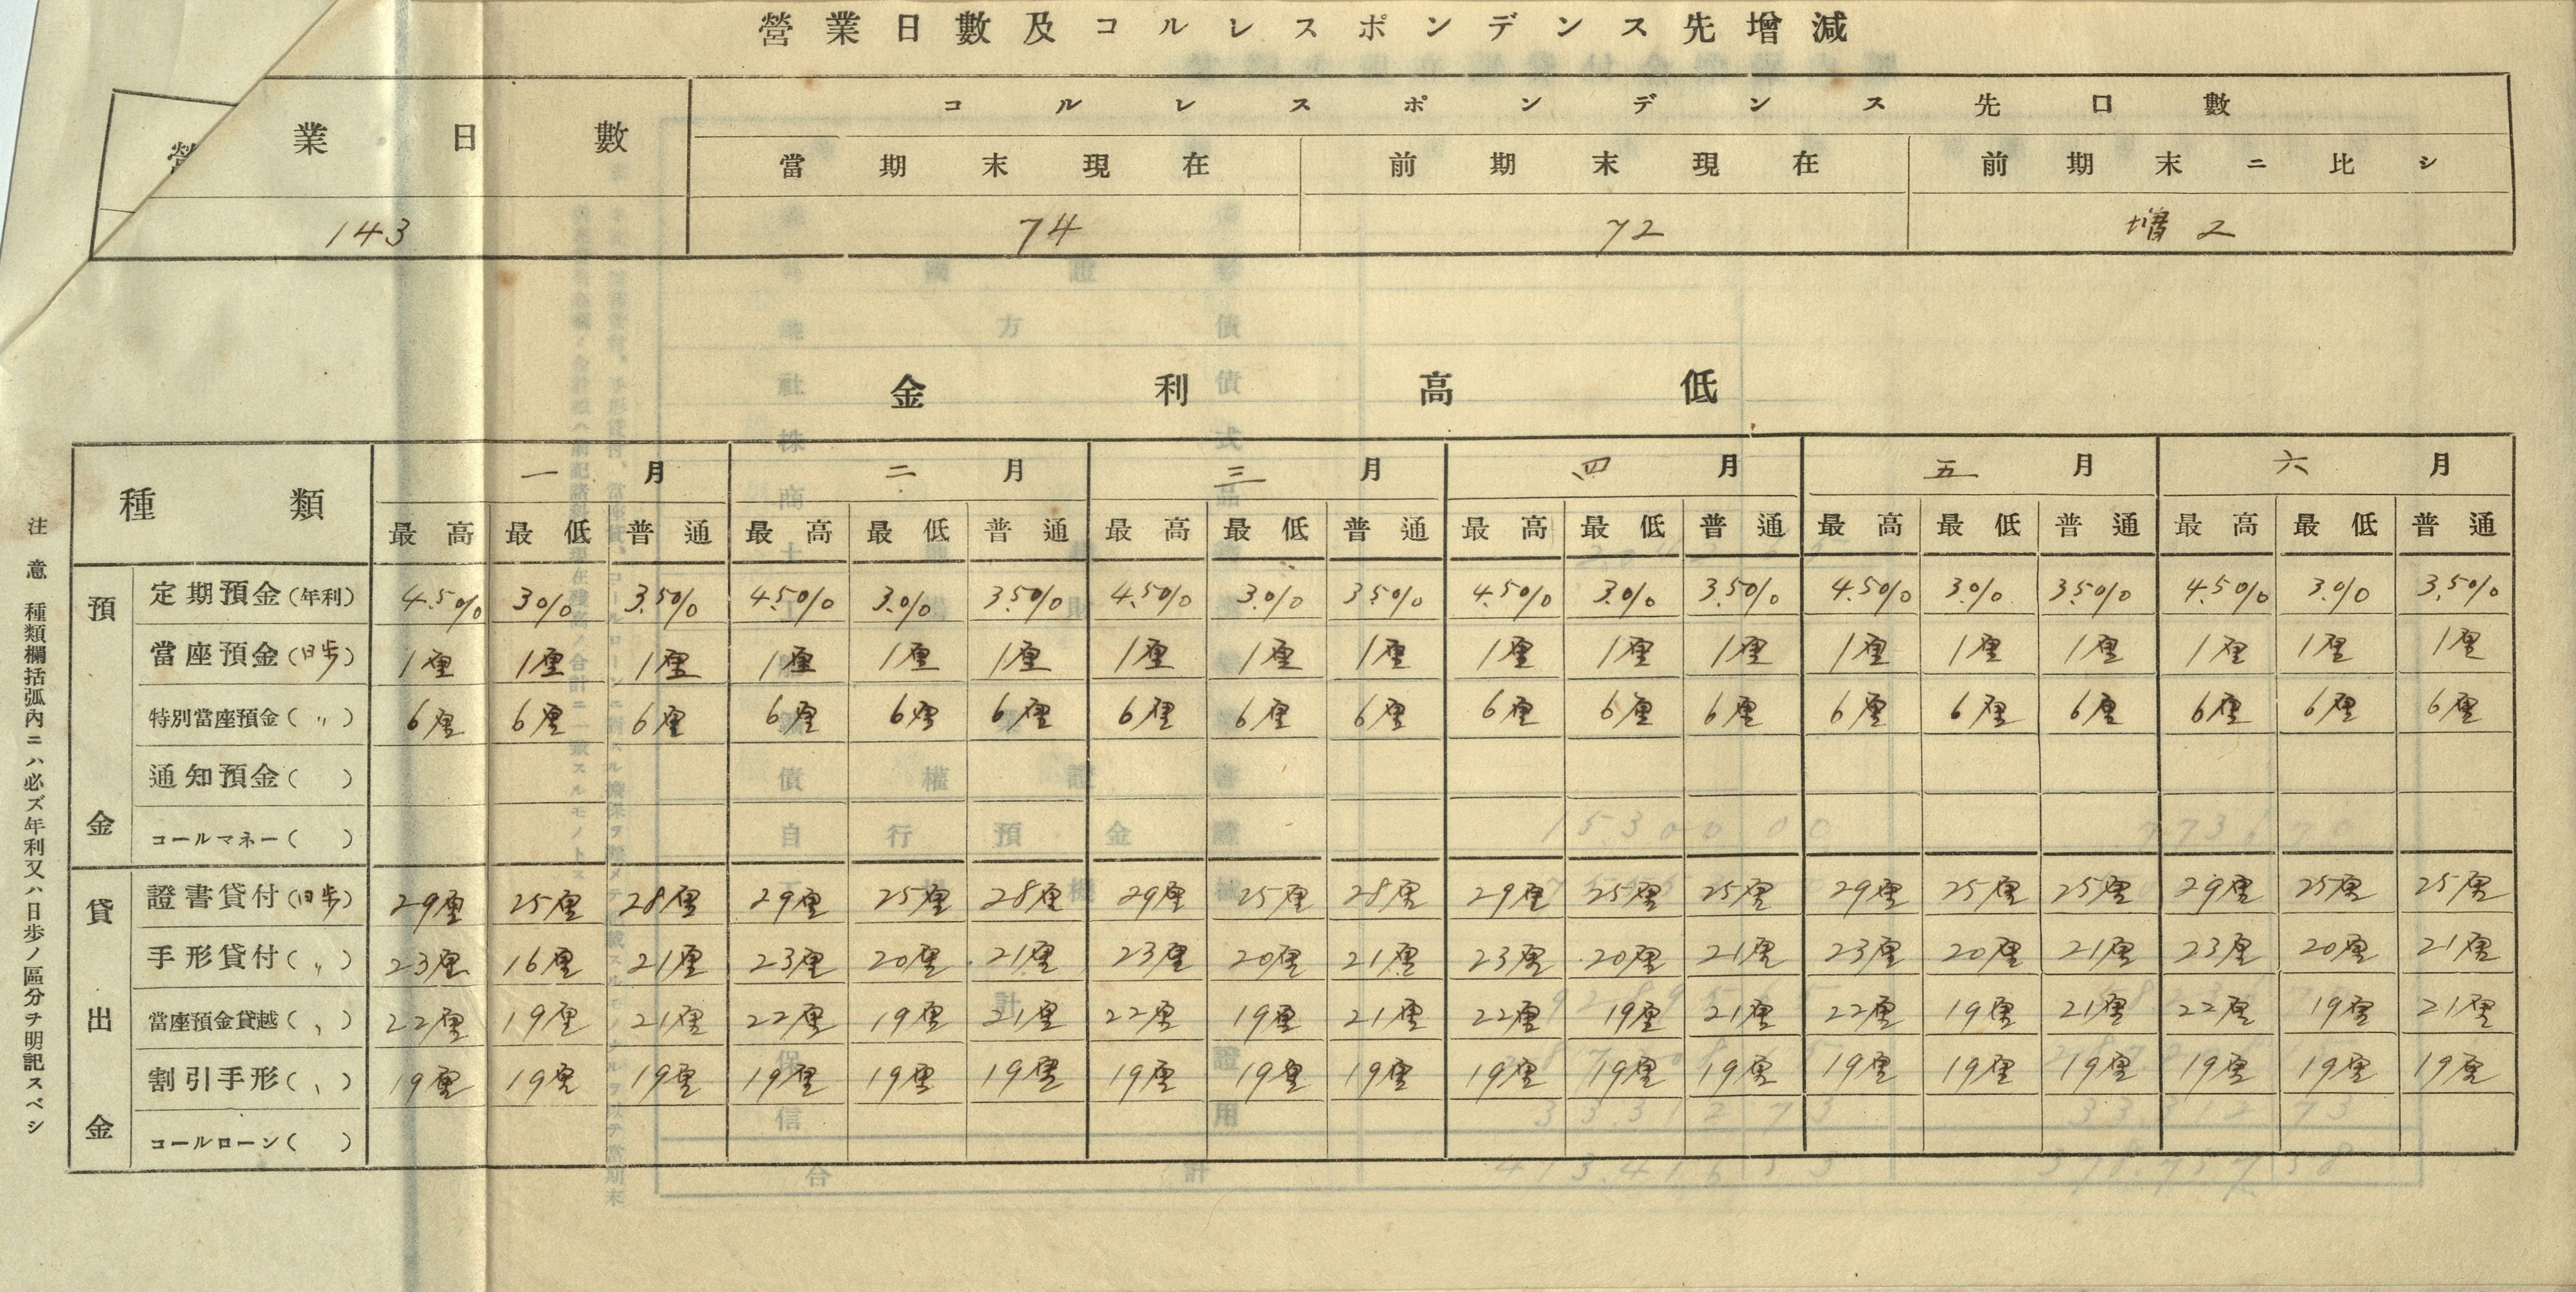 營業日數及コルレスポンデンス先增減
營業日數 コルレスポンデンス先口數
當期末現在 前期末現在 前期末ニ比シ
143 74 72 増 2
金利高低
種類 一月 二月 三月 四月 五月 六月
最高 最低 普通 最高 最低 普通 最高 最低 普通 最高 最低 普通 最高 最低 普通 最高 最低 普通
預金
定期預金(年利) 4.5% 3% 3.5% 4.5% 3.% 3.5% 4.5% 3.% 3.5% 4.5% 3.% 3.5% 4.5% 3.% 3.5% 4.5% 3.% 3.5%
當座預金(日歩) 1厘 1厘 1厘 1厘 1厘 1厘 1厘 1厘 1厘 1厘 1厘 1厘 1厘 1厘 1厘 1厘 1厘 1厘
特別當座預金(〃) 6厘 6厘 6厘 6厘 6厘 6厘 6厘 6厘 6厘 6厘 6厘 6厘 6厘 6厘 6厘 6厘 6厘 6厘
通知預金( )
コールマネー( )
貸出金
證書貸付(日歩) 29厘 25厘 28厘 29厘 25厘 28厘 29厘 25厘 28厘 29厘 25厘 25厘 29厘 25厘 25厘 29厘 25厘 25厘
手形貸付(〃) 23厘 16厘 21厘 23厘 20厘 21厘 23厘 20厘 21厘 23厘 20厘 21厘 23厘 20厘 21厘 23厘 20厘 21厘
當座預金貸越(〃) 22厘 19厘 21厘 22厘 19厘 21厘 22厘 19厘 21厘 22厘 19厘 21厘 22厘 19厘 21厘 22厘 19厘 21厘
割引手形(〃) 19厘 19厘 19厘 19厘 19厘 19厘 19厘 19厘 19厘 19厘 19厘 19厘 19厘 19厘 19厘 19厘 19厘 19厘
コールローン( )
注意 種類欄括弧內ニハ必ズ年利又ハ日歩ノ區分ヲ明記スベシ